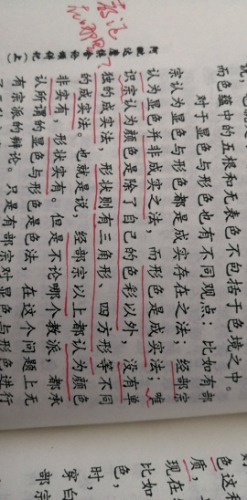 而色蕴中的五根和无表色不包括于色境之中
对于显色与形色也有不同观点：比如有部
宗认为显色与形色都是成实存在之法；经部宗
认为显色并非成实之法，而形色是成实法；唯
识宗认为颜色是除了自己的色彩以外，没有单
独的成实法，形状则有三角形、四方形等不同
的成实法。也就是说，经部宗以上都认为颜色
非实有，形状实有。但是不论哪个教派，都承
认所谓的显色与形色是色法，在这个问题上无
有宗派的辩论。只是有部宗对显色与形色进行
色这
质，
现在
比如
色，
时，
穿白
部宗